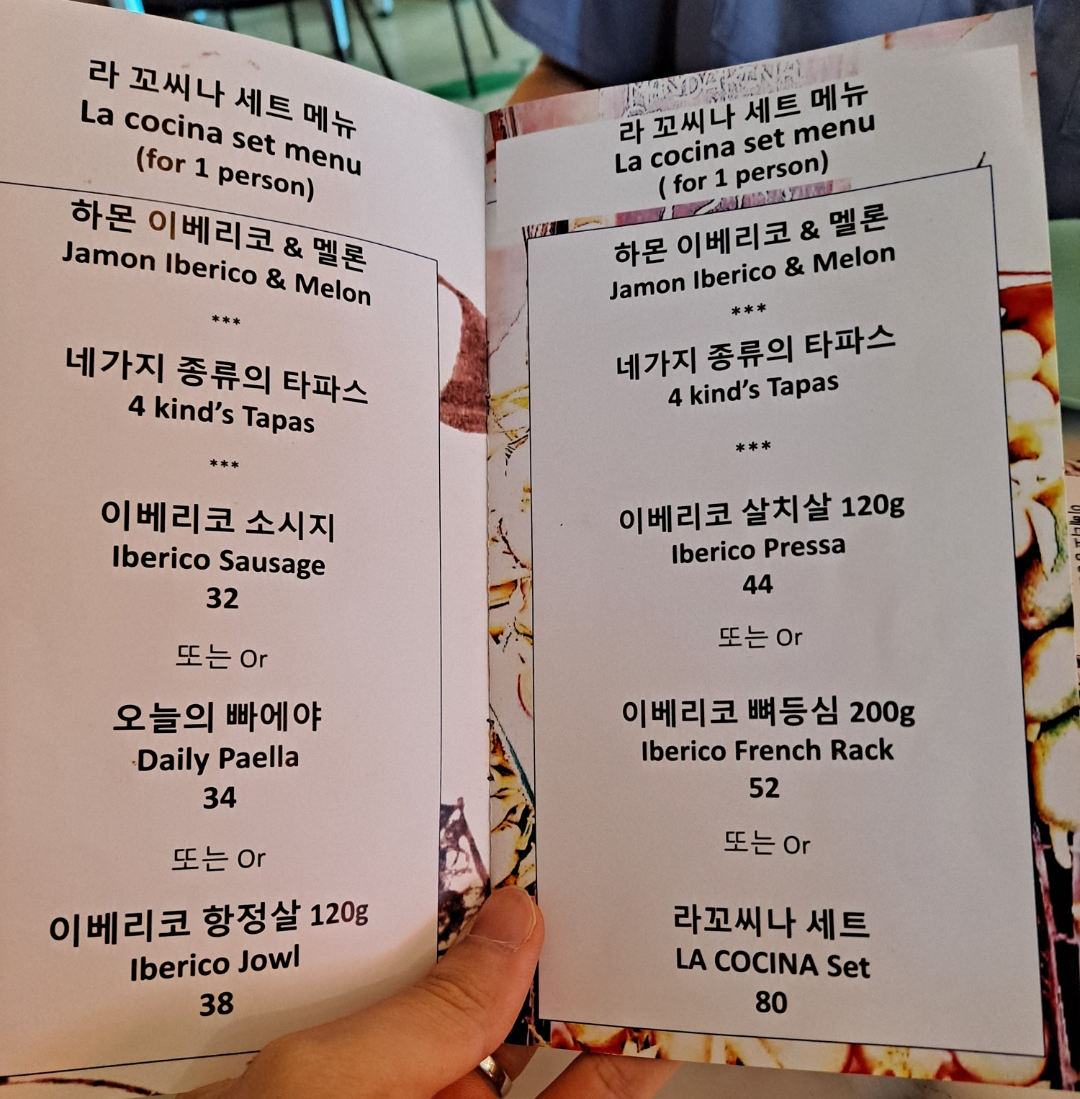 라 꼬씨나 세트 메뉴
La cocina set menu
(for 1 person)
하몬 이베리코 & 멜론
Jamon Iberico & Melon
***
네가지 종류의 타파스
4 kind’s Tapas
***
이베리코 소시지
Iberico Sausage
32
또는 Or
오늘의 빠에야
Daily Paella
34
또는 Or
이베리코 항정살 120g
Iberico Jowl
38
라 꼬씨나 세트 메뉴
La cocina set menu
( for 1 person)
하몬 이베리코 & 멜론
Jamon Iberico & Melon
***
네가지 종류의 타파스
4 kind’s Tapas
***
이베리코 살치살 120g
Iberico Pressa
44
또는 Or
이베리코 뼈등심 200g
Iberico French Rack
52
또는 Or
라꼬씨나 세트
LA COCINA Set
80